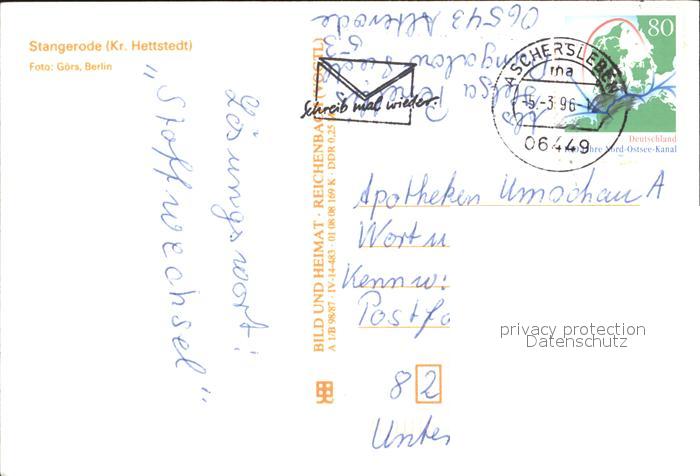 Stangerode (Kr. Hettstedt)
Foto: Görs, Berlin
"Stoffwechsel"
Lösungswort:
BILD UND HEIMAT · REICHENBACH (VOGTL)
A 1/B 98/87 · IV-14-483 · 01 08 08 169 K · DDR 0.25
Schreib mal wieder.
06543 Alterode
53
ASCHERSLEBEN
-5.-3.96-
06449
80
Deutschland
Jahre Nord-Ostsee-Kanal
Apotheken Umschau A
Wort u
Kennw:
Postfa
82
Unter
privacy protection
Datenschutz